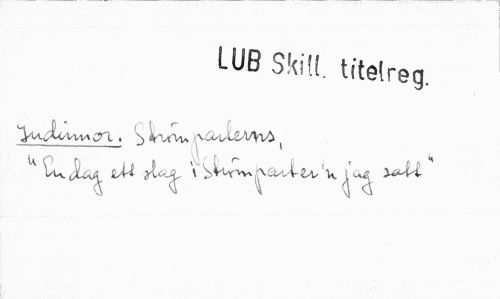 LUB Skill. titelreg.
Indinnor. Strömparterns,
"En dag ett slag i Strömparter'n jag satt"